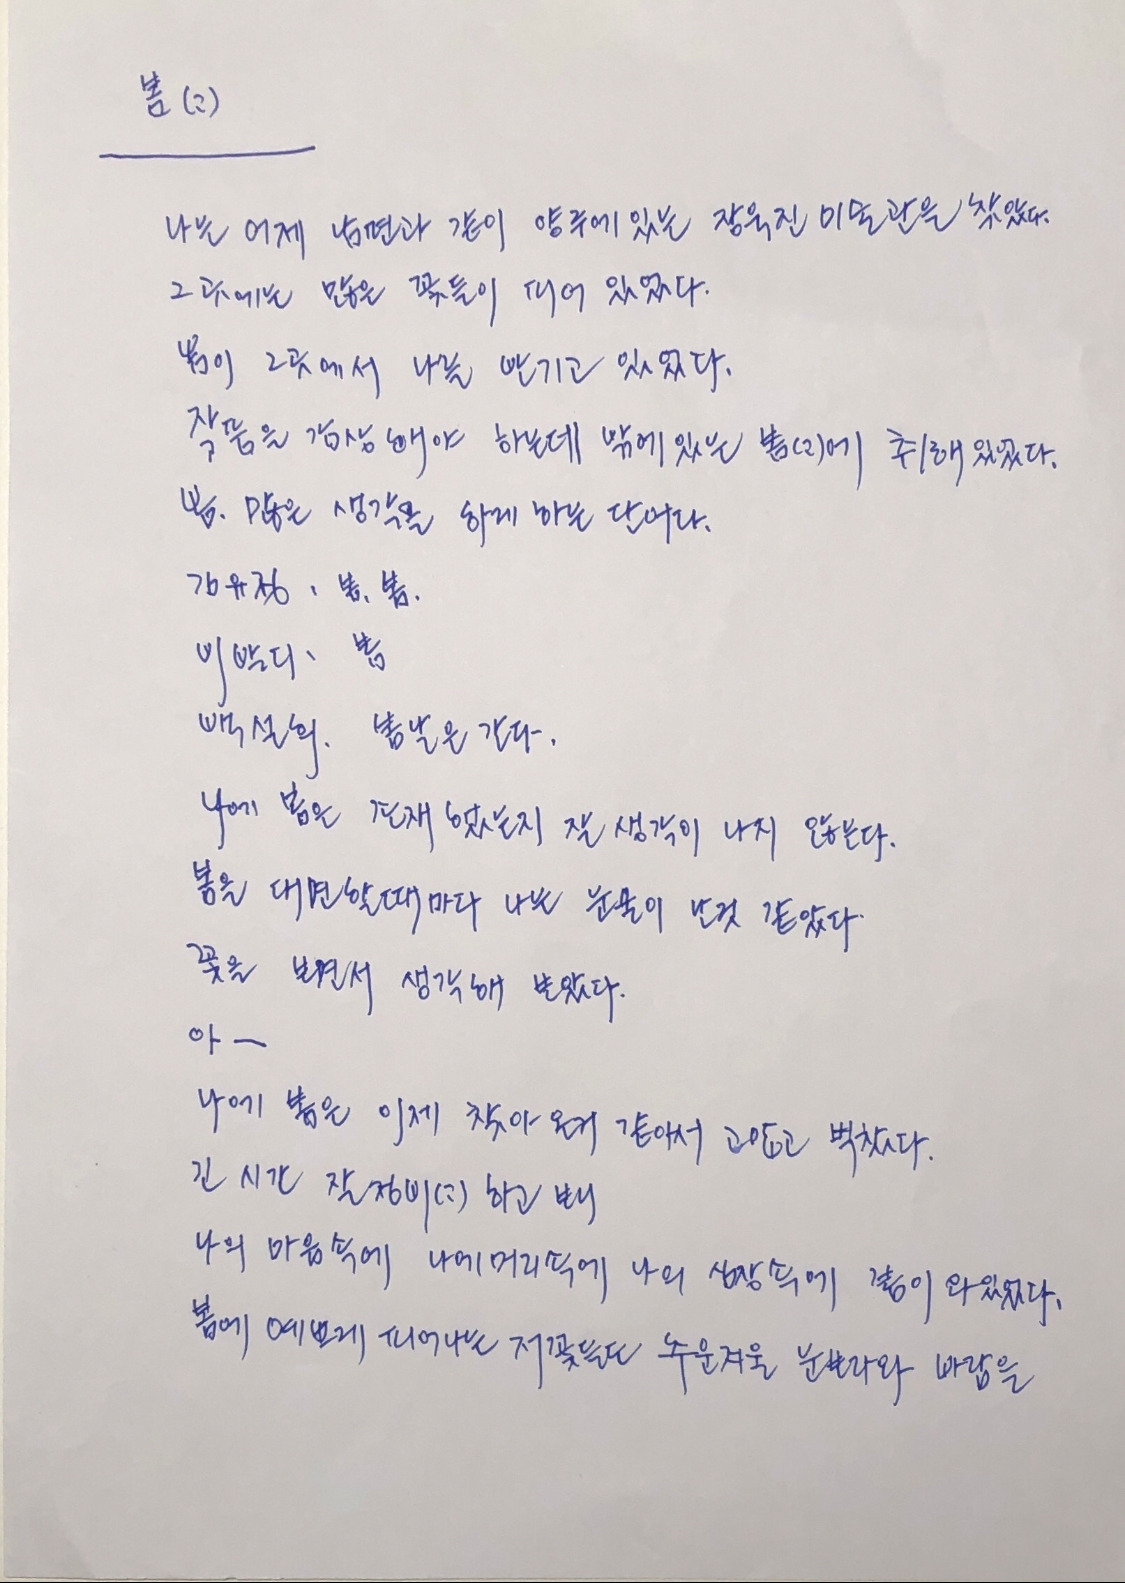 봄(2)
나는 어제 남편과 같이 양주에 있는 장욱진 미술관을 찾았다.
그곳에는 많은 꽃들이 피어 있었다.
봄이 그곳에서 나를 반기고 있었다.
작품을 감상해야 하는데 밖에 있는 봄(2)에 취해 있었다.
봄. 많은 생각을 하게 하는 단어다.
김유정、봄、봄.
비발디、봄
백설희. 봄날은 간다.
나에 봄은 존재 했었는지 잘 생각이 나지 않는다.
봄을 대면할때마다 나는 눈물이 난것 같았다.
꽃을 보면서 생각해 보았다.
아 —
나에 봄은 이제 찾아 온거 같아서 고맙고 벅찼다.
긴 시간 잘 정비(2) 하고 보니
나의 마음속에 나에 머리속에 나의 심장속에 봄이 와 있었다.
봄에 예쁘게 피어나는 저 꽃들도 추운겨울 눈보라와 바람을